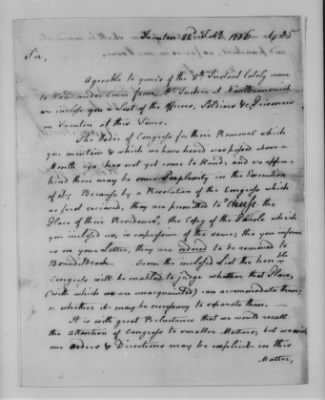 Trenton 22d Feb. 1776
Sir,
Agreeable to yours of the 8th Instant lately come
to Hand under Cover from Mr Tucker at New Brunswick
we inclose you a List of the Officers, Soldiers & Prisoners
in Trenton at this Time.
The Order of Congress for their Removal which
you mention & which we have heard was passed above a
Month ago, has not yet come to Hand; and we appre-
hend there may be some Perplexity in the Execution
of it; Because by a Resolution of the Congress which
we first received, they are permitted to chuse the
Place of their Residence, the Copy of the Parole which
you inclosed us, is expressive of the same; tho you inform
us in your Letter, they are ordered to be removed to
Bound Brook. From the inclosed List the honble
Congress will be enabled to judge whether that Place,
(with which we are unacquainted) can accommodate them;
or whether it may be necessary to separate them.
It is with great Reluctance that we would recall
the attention of Congress to smaller Matters, but
orders & Directions may be explicit in this
Matter,